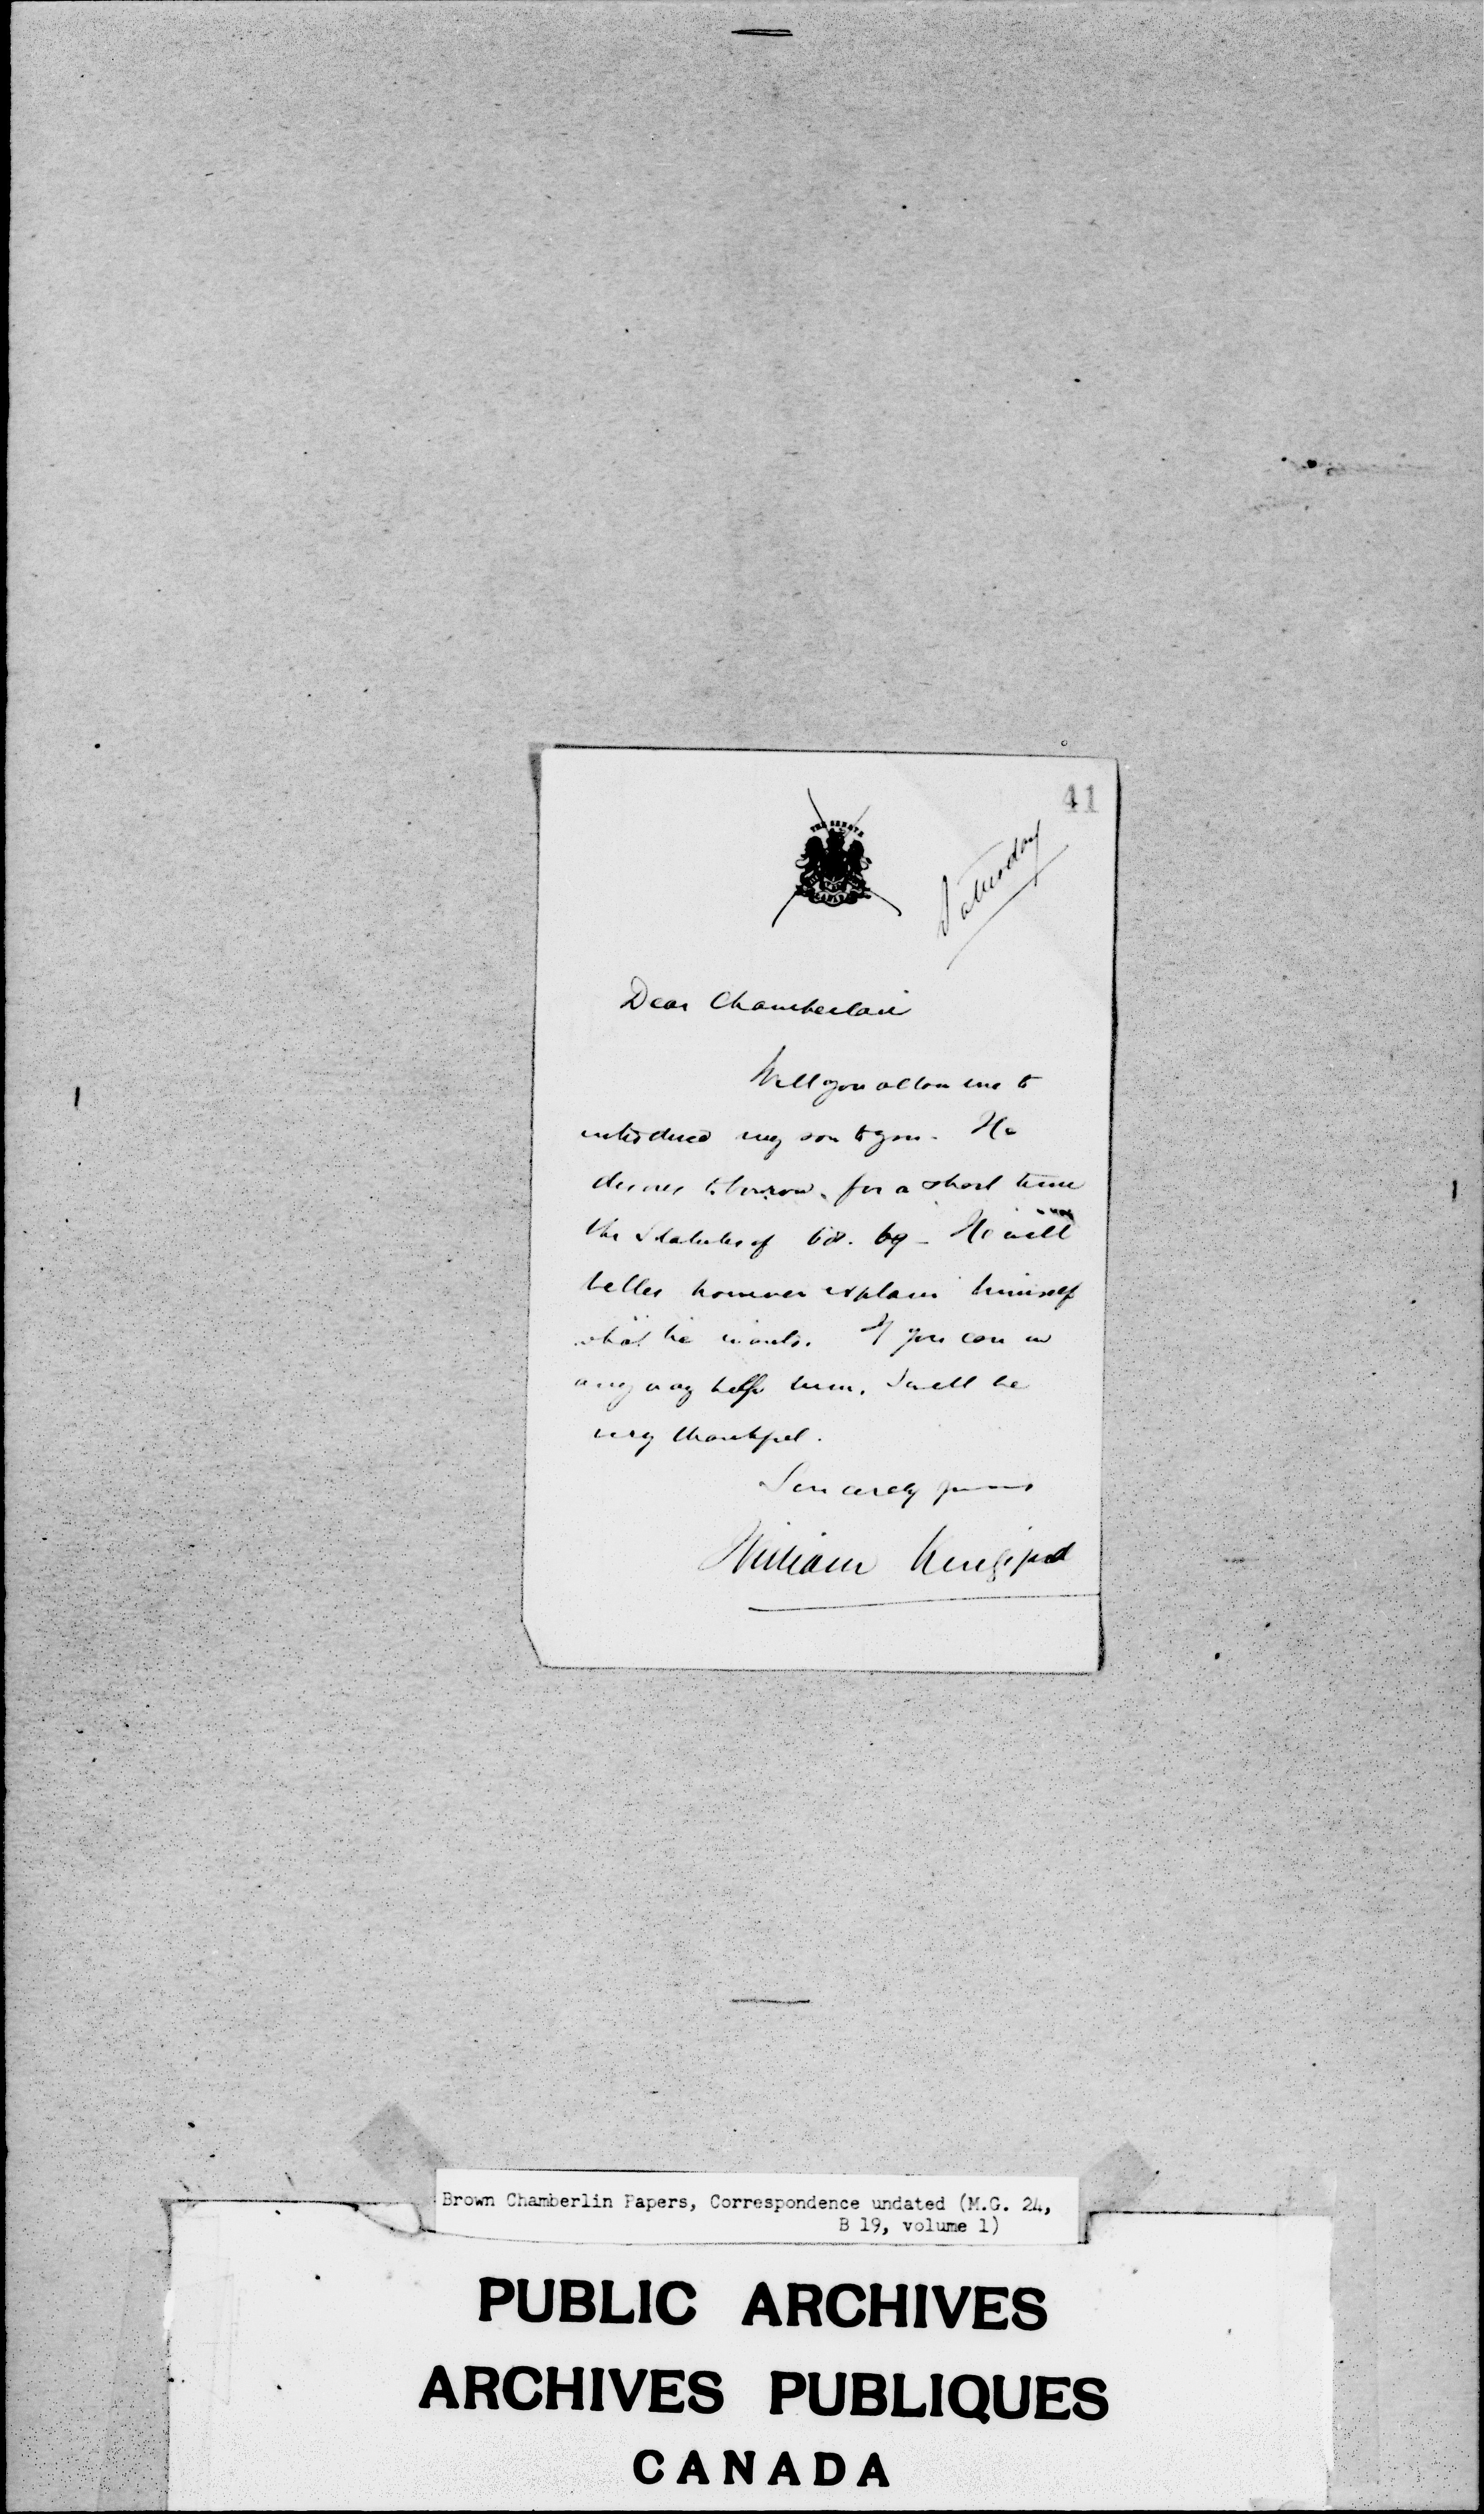 41
THE SENATE
CANADA
Saturday
Dear Chamberlain
Will you allow me to
introduce my son to you. He
desires to borrow, for a short time
the Statutes of 68. 69 - He will
better however explain himself
what he wants. If you can in
any way help him, I will be
very thankful.
Sincerely yours
William Kingsford
Brown Chamberlin Papers, Correspondence undated (M.G. 24,
B 19, volume 1)
PUBLIC ARCHIVES
ARCHIVES PUBLIQUES
CANADA